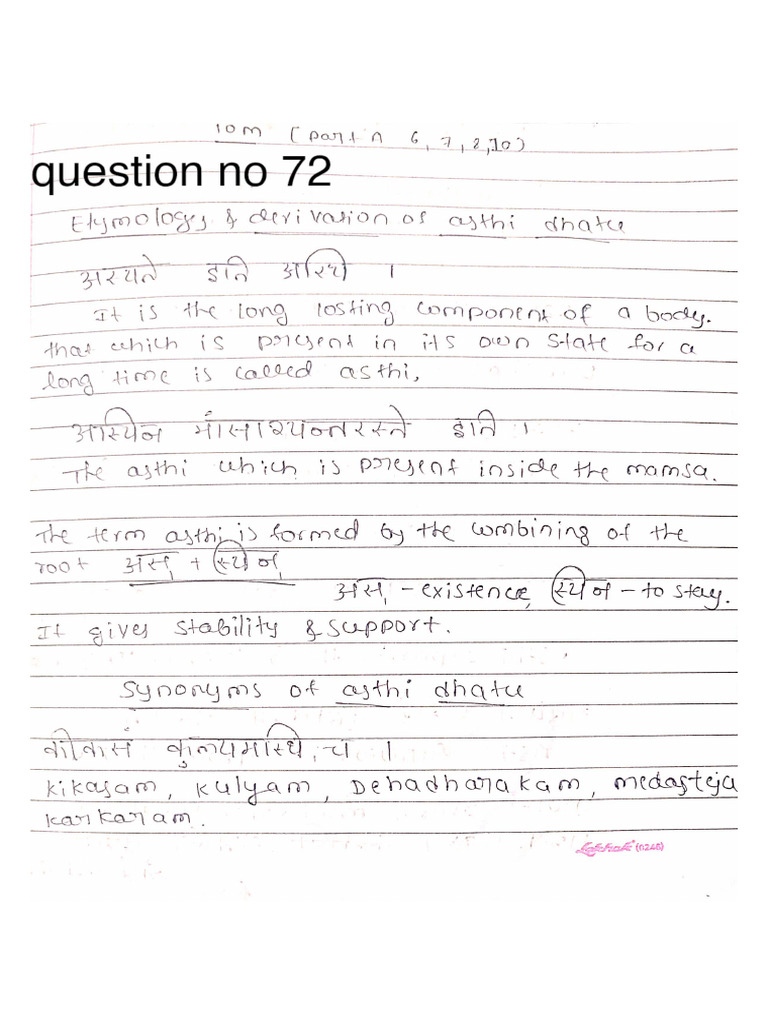 10m (part n 6, 7, 8, 10)
question no 72
Etymology & derivation of asthi dhatu
अस्यते इति अस्थि ।
It is the long losting component of a body.
that which is present in its own state for a
long time is called asthi,
अस्थिन मांसाभ्यन्तरस्ते इति ।
The asthi which is present inside the mamsa.
The term asthi is formed by the combining of the
root अस् + स्थिन्
अस् - existence, स्थिन - to stay.
It gives stability & support.
Synonyms of asthi dhatu
कीकसं कुल्यमस्थि च ।
Kikasam, Kulyam, Dehadharakam, medasteja
Karkaram.
(0246)